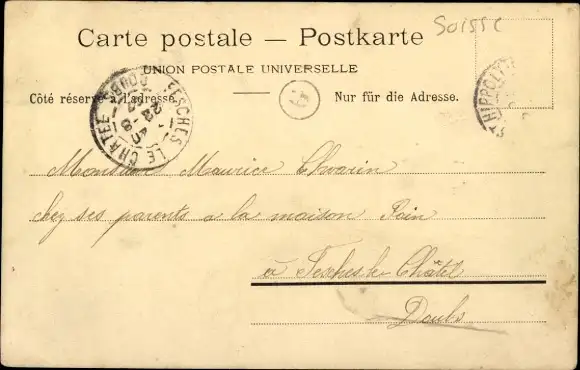 SUISSE
Carte postale — Postkarte
UNION POSTALE UNIVERSELLE
Côté réservé à l'adresse. Nur für die Adresse.
FESCHES LE CHATEL DOUBS
HIPPOLYTE
Monsieur Maurice
chez ses parents a la maison
à Fesches le Châtel
Doubs